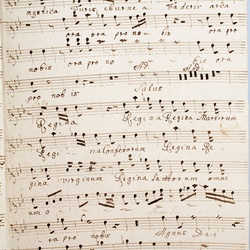 mystica Turis eburnea Faderis arca
ora ora pro nobis ora pro
nobis ora pro no bis
pro nobis Salus
Regina Regina Regina Martirum
Regi na Confessorum Regina Re
gina virginum Regina Sanctorum omni
um o
ra pro nobis Agnus Dei